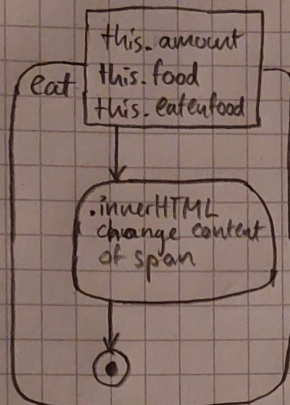 this.amount
this.food
this.eatenfood
eat
.innerHTML
change content
of span